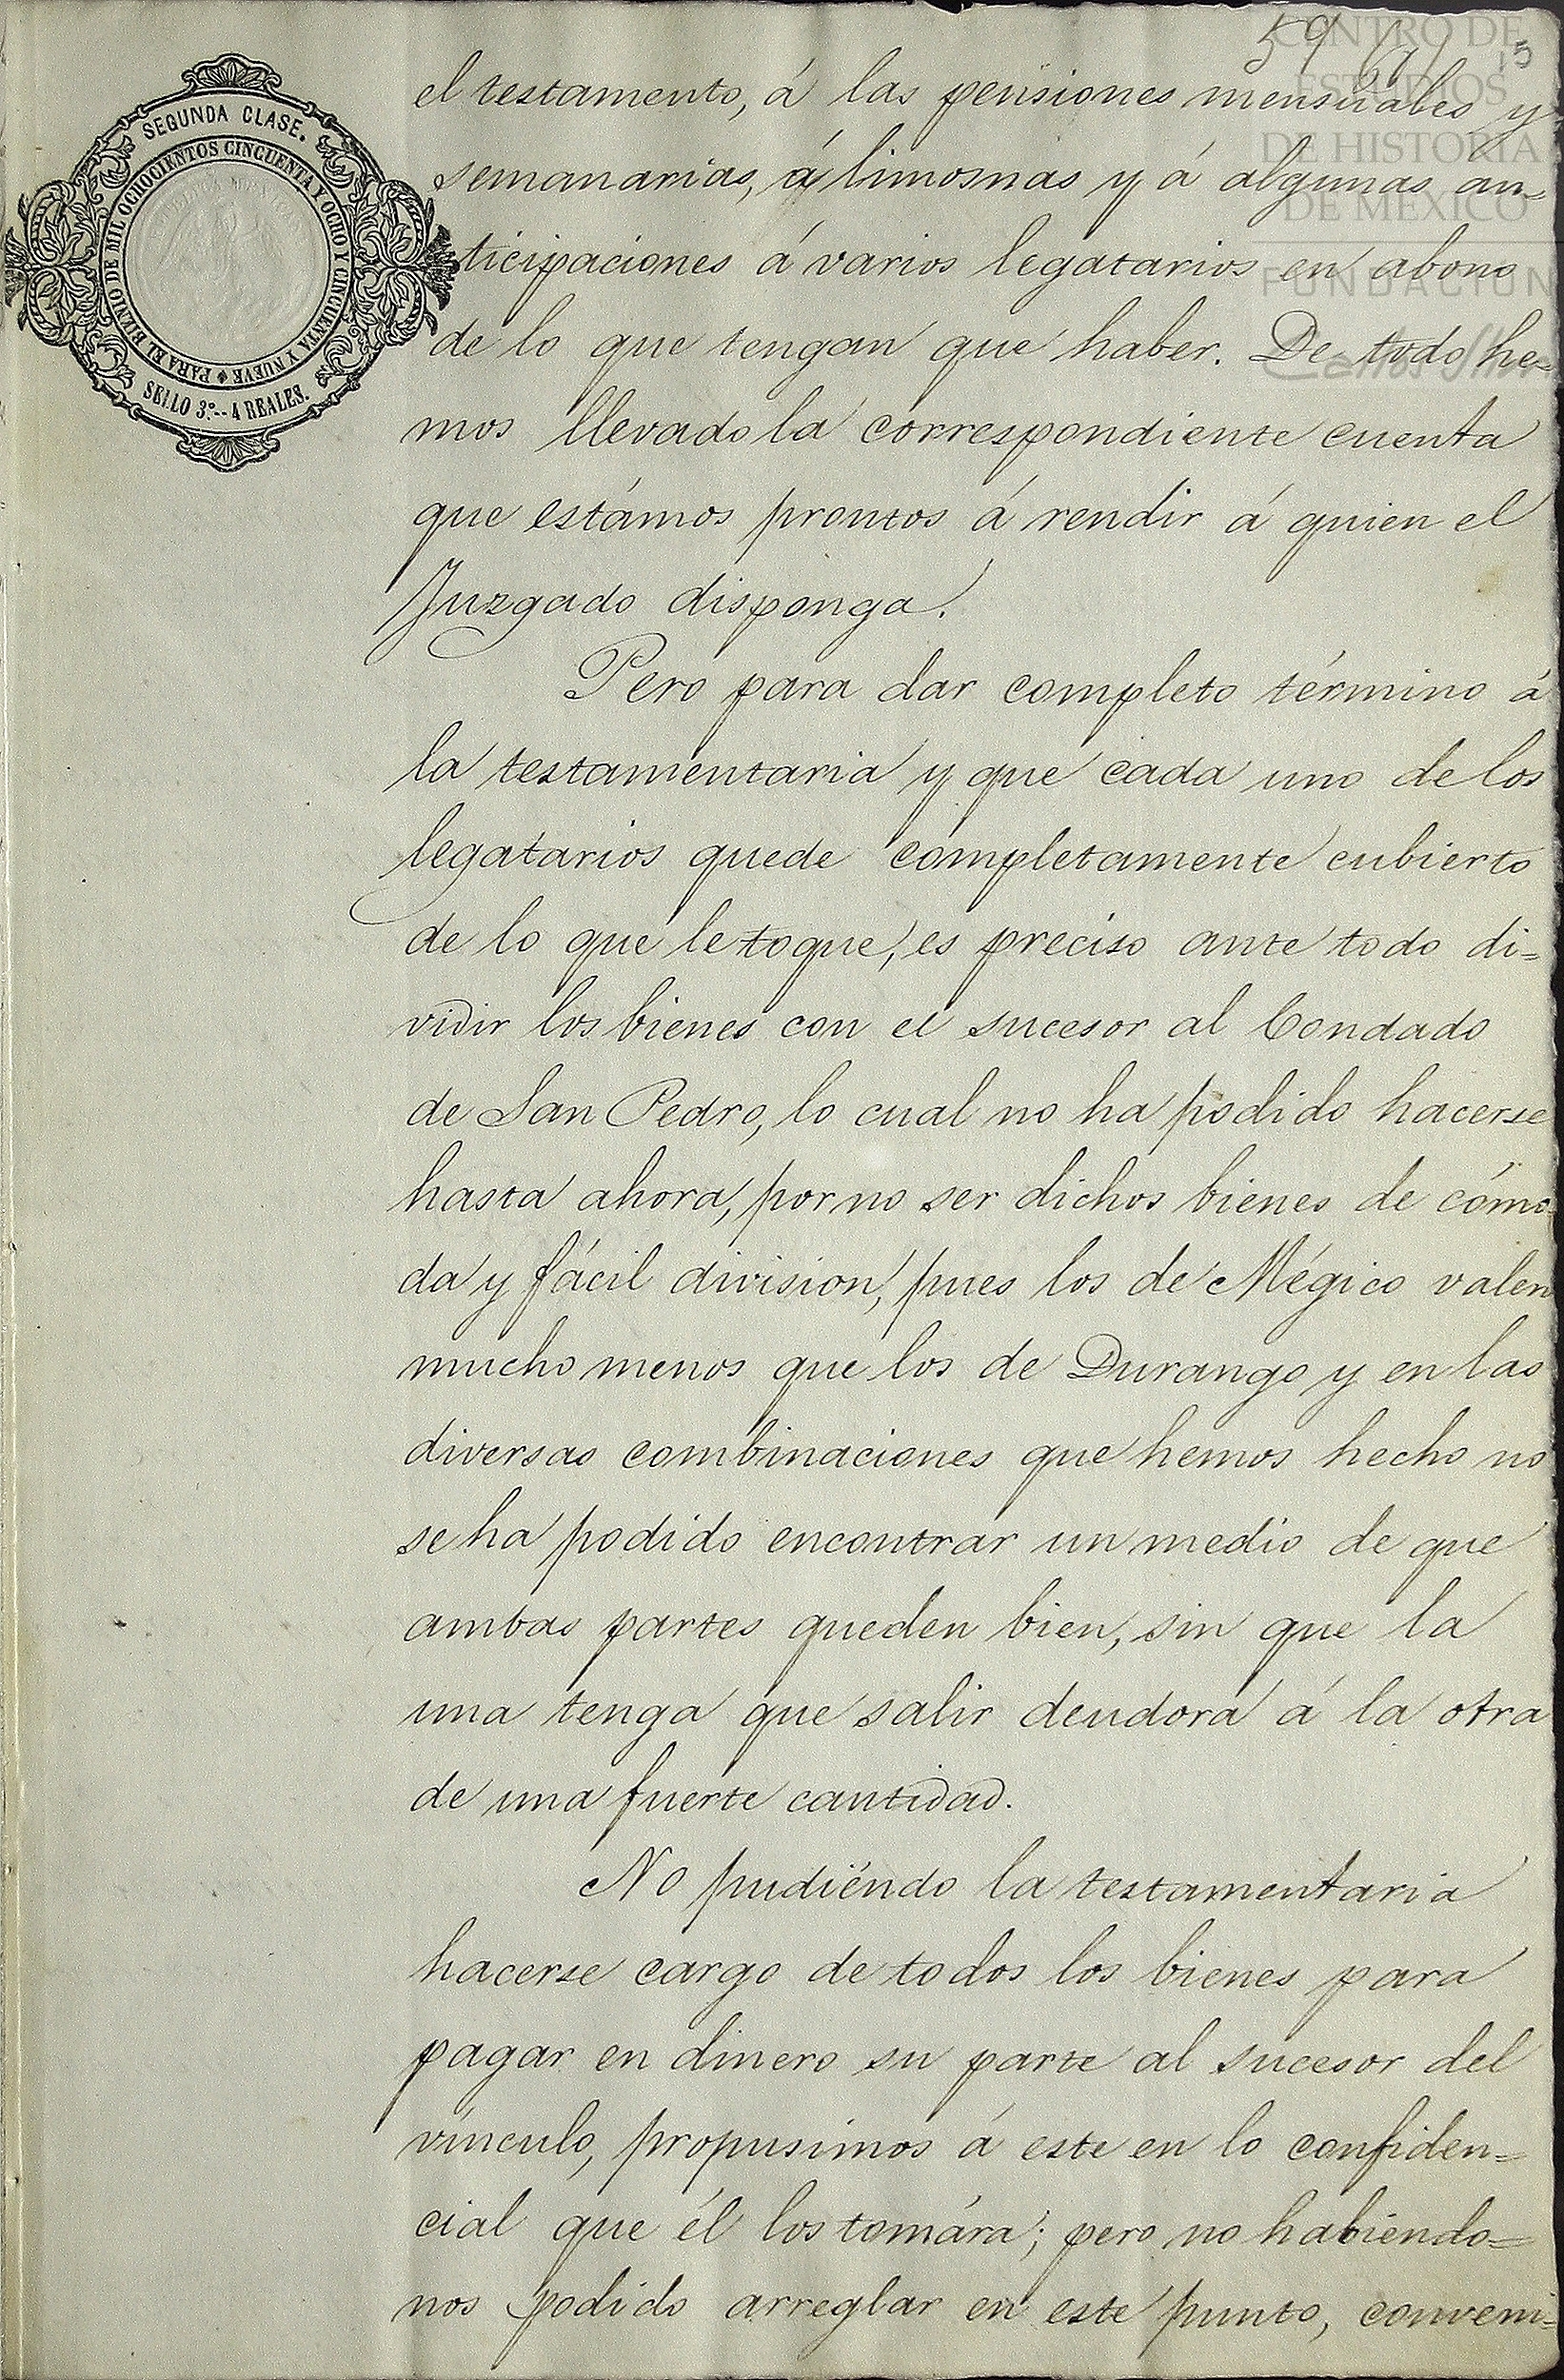 59 (61) 15
CENTRO DE
ESTUDIOS
DE HISTORIA
DE MÉXICO
FUNDACIÓN
Carlos Slim
SEGUNDA CLASE.
PARA EL BIENIO DE MIL OCHOCIENTOS CINCUENTA Y OCHO Y CINCUENTA Y NUEVE
SELLO 3º.--4 REALES.
el testamento, á las pensiones mensuales y
semanarias, á limosnas y á algunas an=
ticipaciones á varios legatarios en abono
de lo que tengan que haber. De todo he=
mos llevado la correspondiente cuenta
que estámos prontos á rendir á quien el
Juzgado disponga.
Pero para dar completo término á
la testamentaria y que cada uno de los
legatarios quede completamente cubierto
de lo que le toque, es preciso ante todo di=
vidir los bienes con el sucesor al Condado
de San Pedro, lo cual no ha podido hacerse
hasta ahora, por no ser dichos bienes de cómo=
da y fácil division, pues los de Mégico valen
mucho menos que los de Durango y en las
diversas combinaciones que hemos hecho no
se ha podido encontrar un medio de que
ambas partes queden bien, sin que la
una tenga que salir deudora á la otra
de una fuerte cantidad.
No pudiéndo la testamentaria
hacerse cargo de todos los bienes para
pagar en dinero su parte al sucesor del
vínculo, propusimos á este en lo confiden=
cial que él los tomára; pero no habiendo=
nos podido arreglar en este punto, conveni=